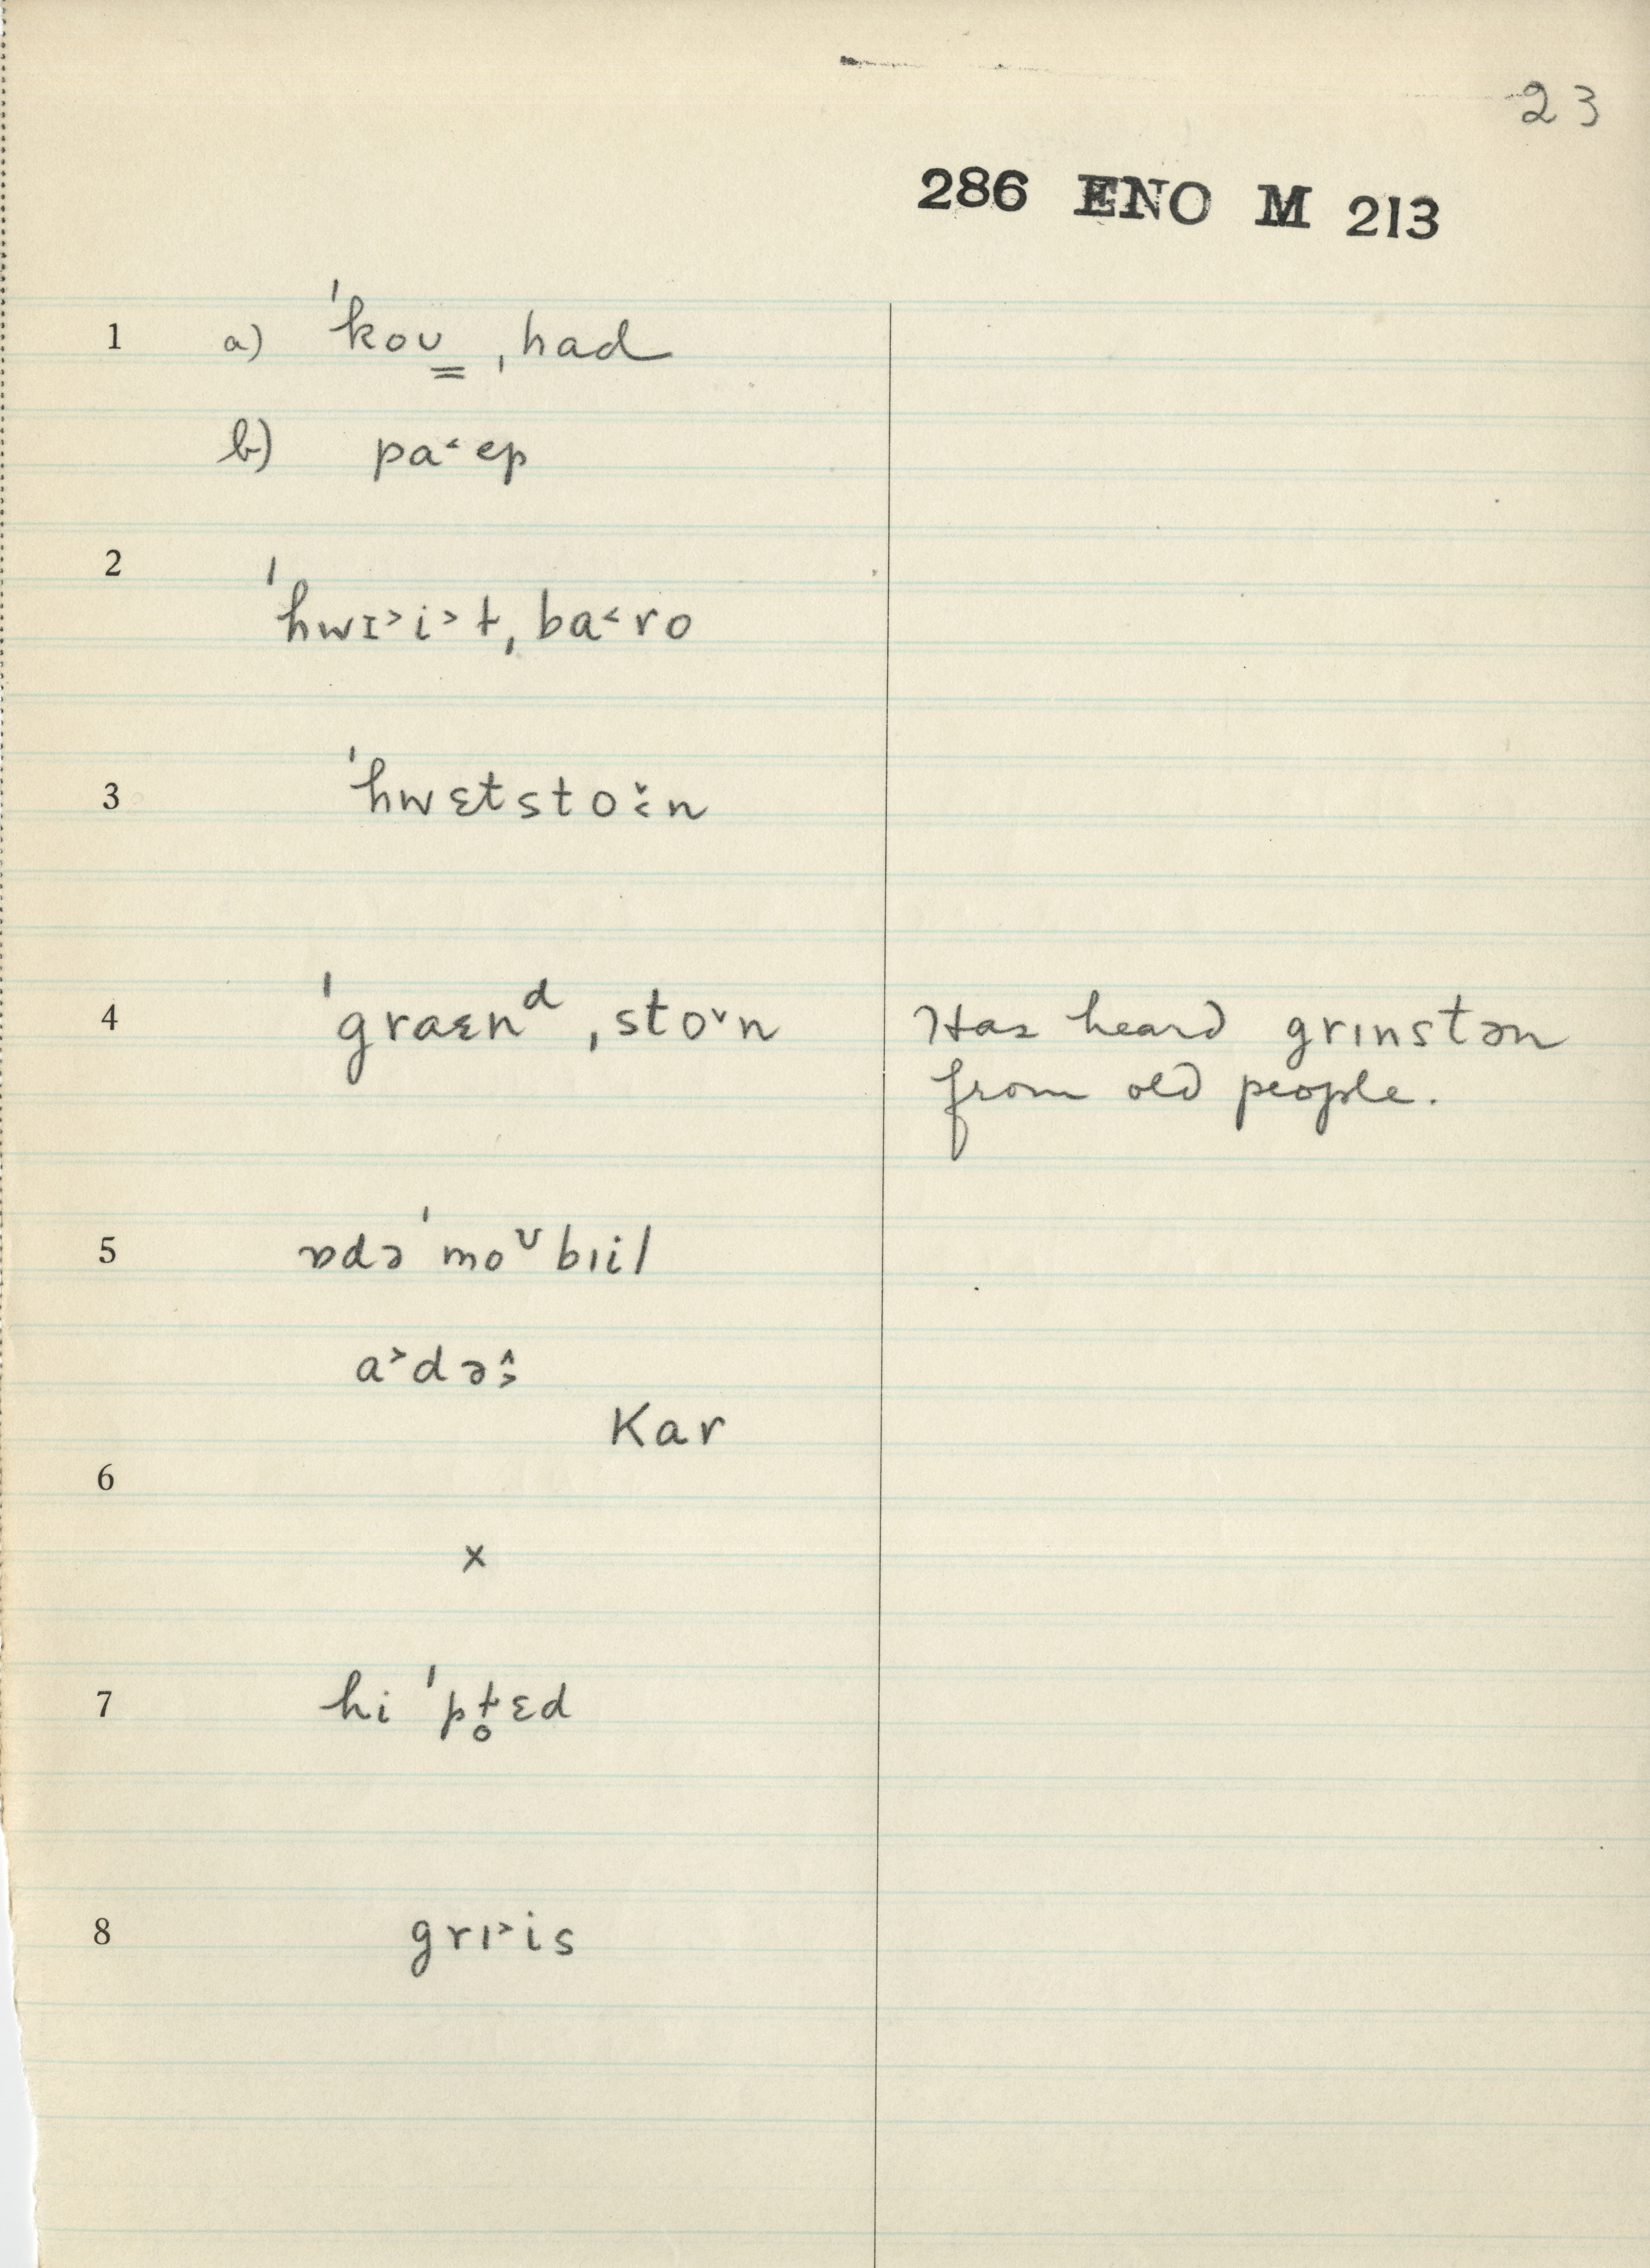 23
286 ENO M 213
1 a) ˈkoʊ̳ ˌhad
b) pa˂ ep
2 ˈhwɪ˃i˃ɫˌba˂ro
3 ˈhwɛtstoˇ˂n
4 ˈgraɛnᵈ ˌstoˇn Has heard grɪnstən
from old people.
5 ɒdəˈmoᶷbɪil
a˃də^˃
Kar
6
x
7 hi ˈpɫ̥ɛd
8 grɪ˃is